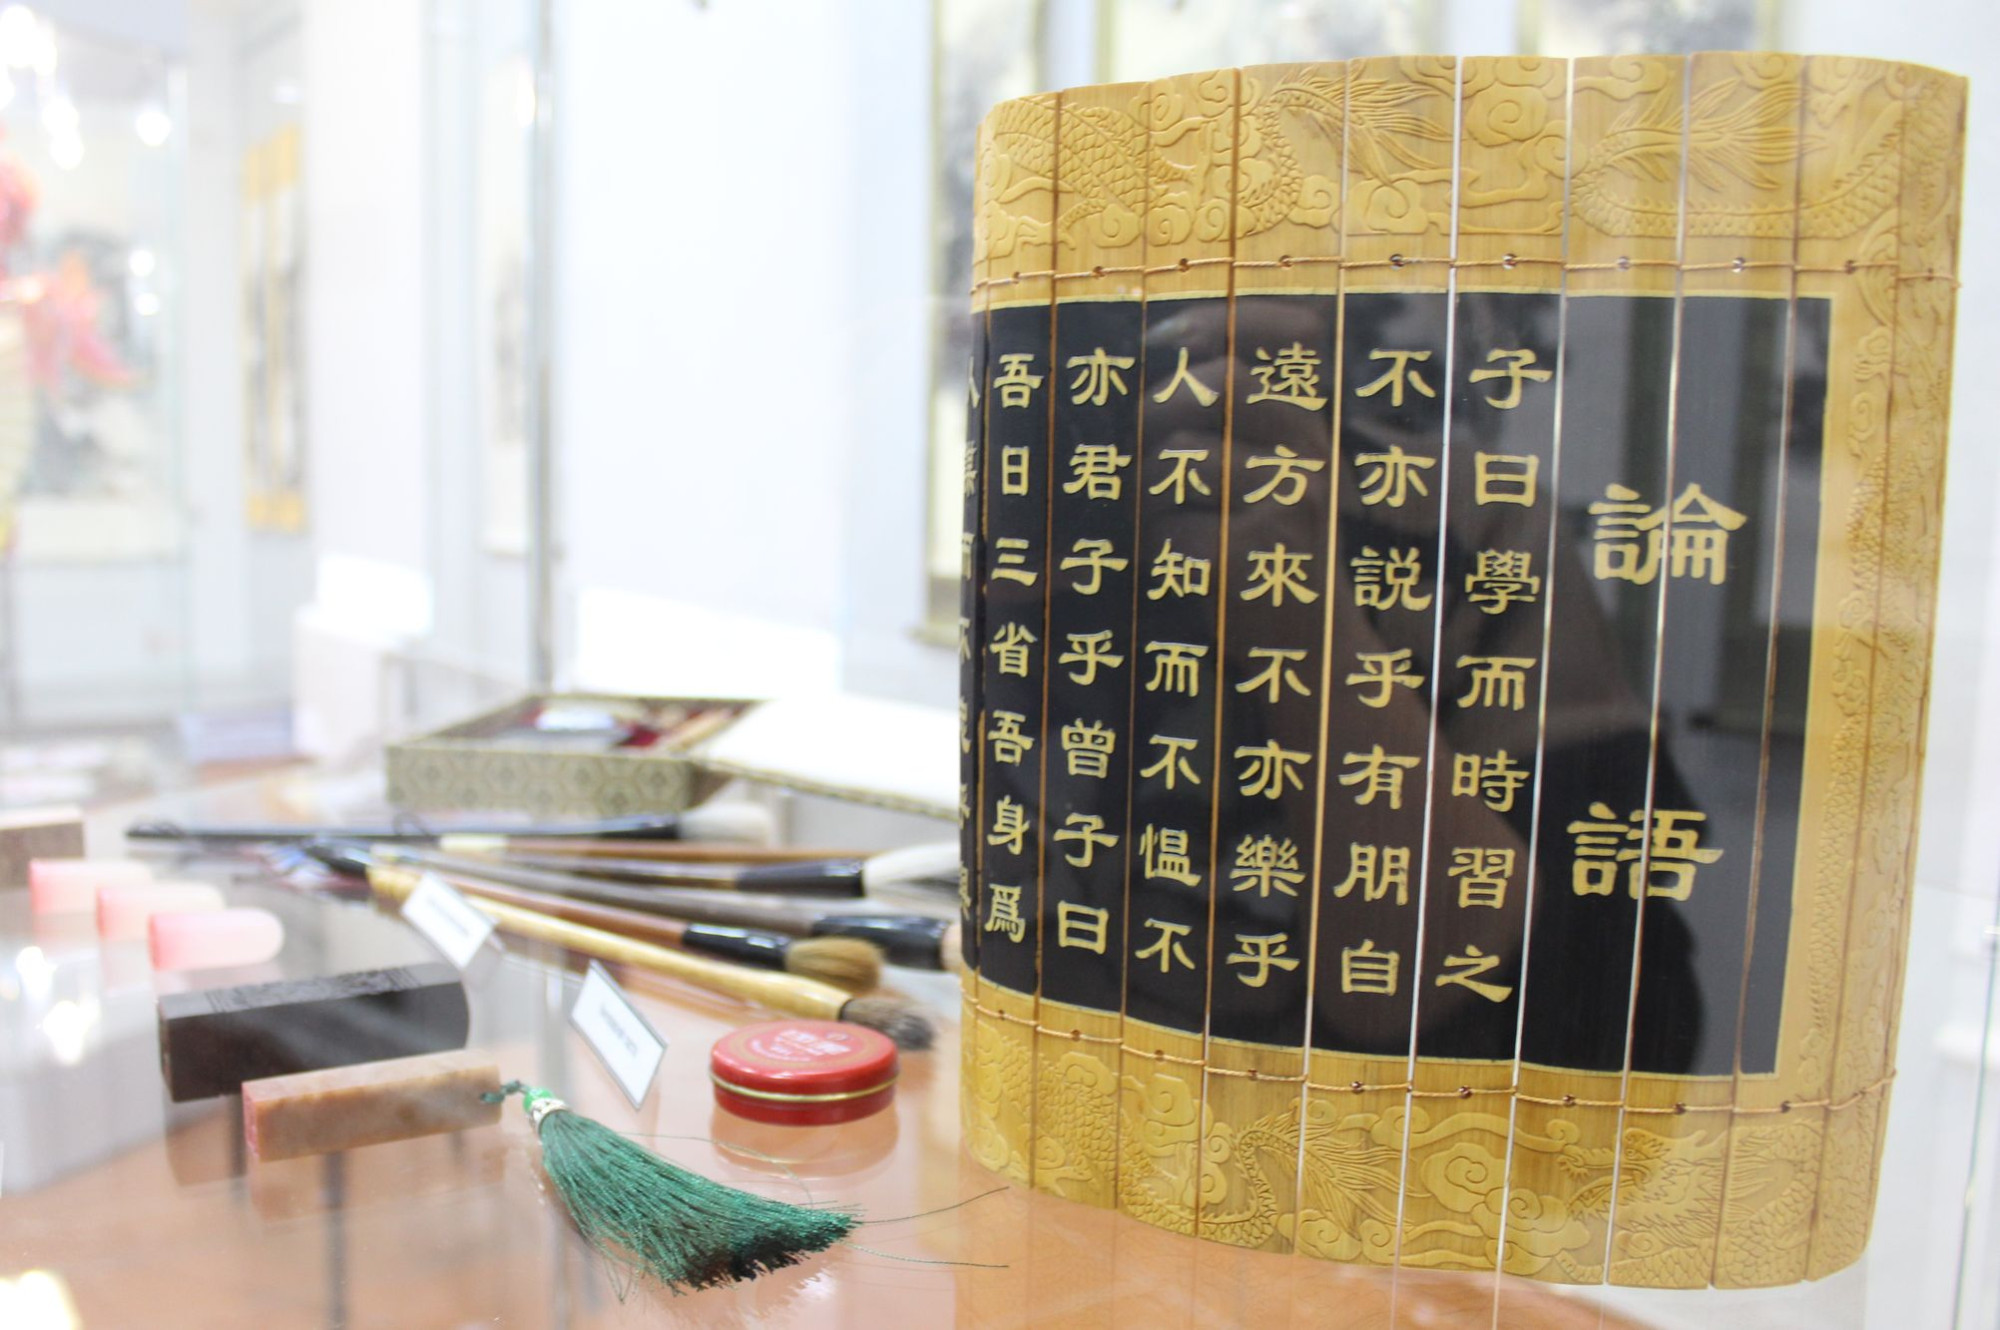 論語
子曰學而時習之
不亦説乎有朋自
遠方來不亦樂乎
人不知而不愠不
亦君子乎曾子曰
吾日三省吾身爲